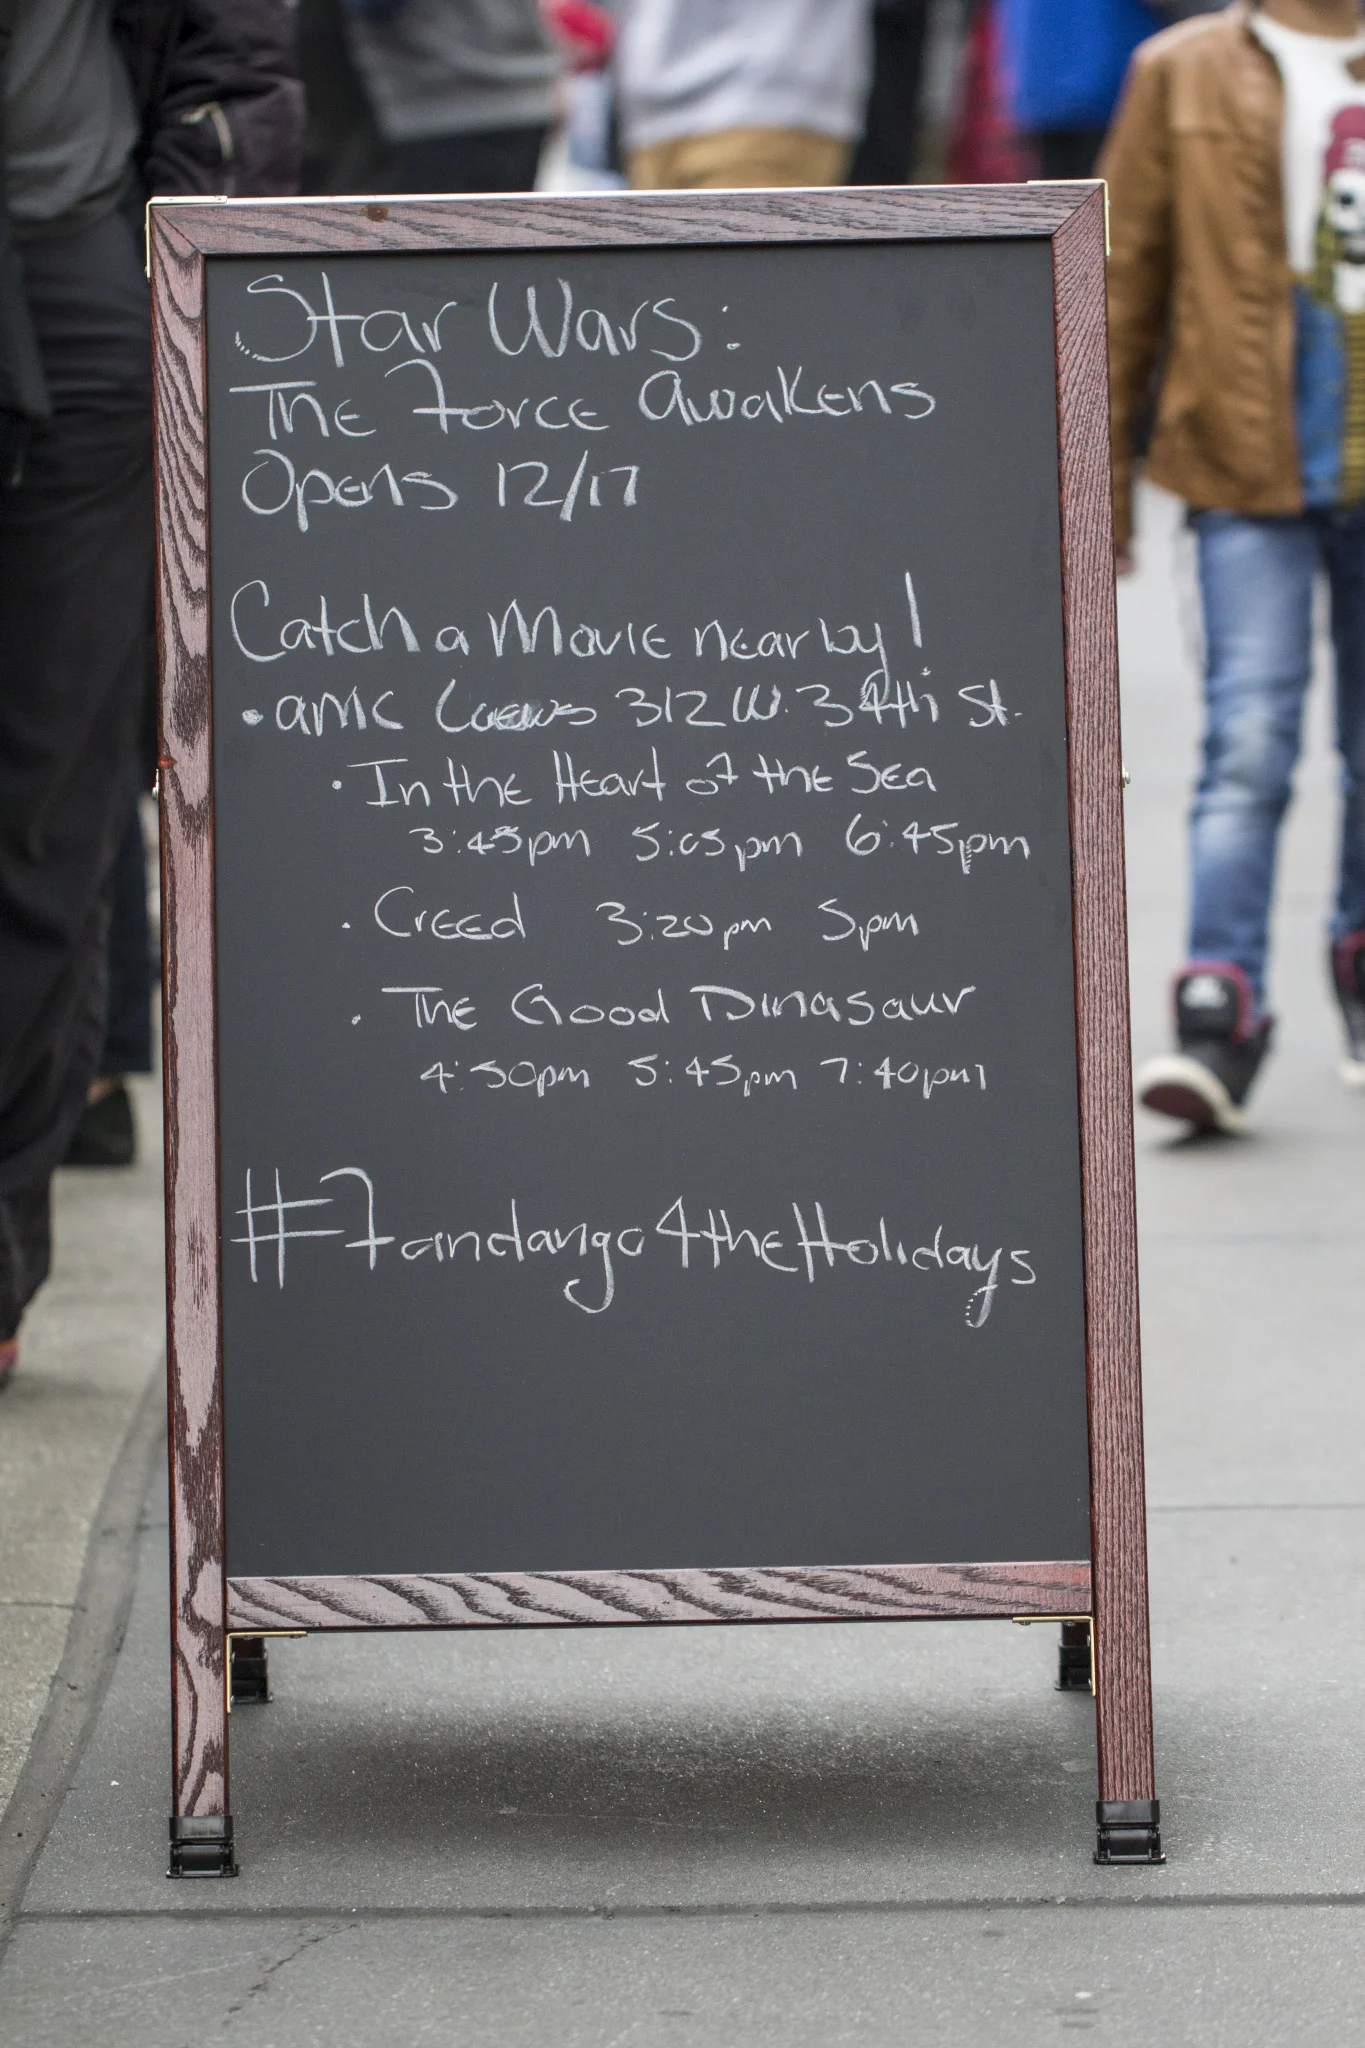 Star Wars:
The Force Awakens
Opens 12/17
Catch a Movie nearby!
• AMC Loews 312 W. 34th St.
• In the Heart of the Sea
3:45pm 5:05pm 6:45pm
• Creed 3:20pm 5pm
• The Good Dinasaur
4:50pm 5:45pm 7:40pm
#Fandango4theHolidays